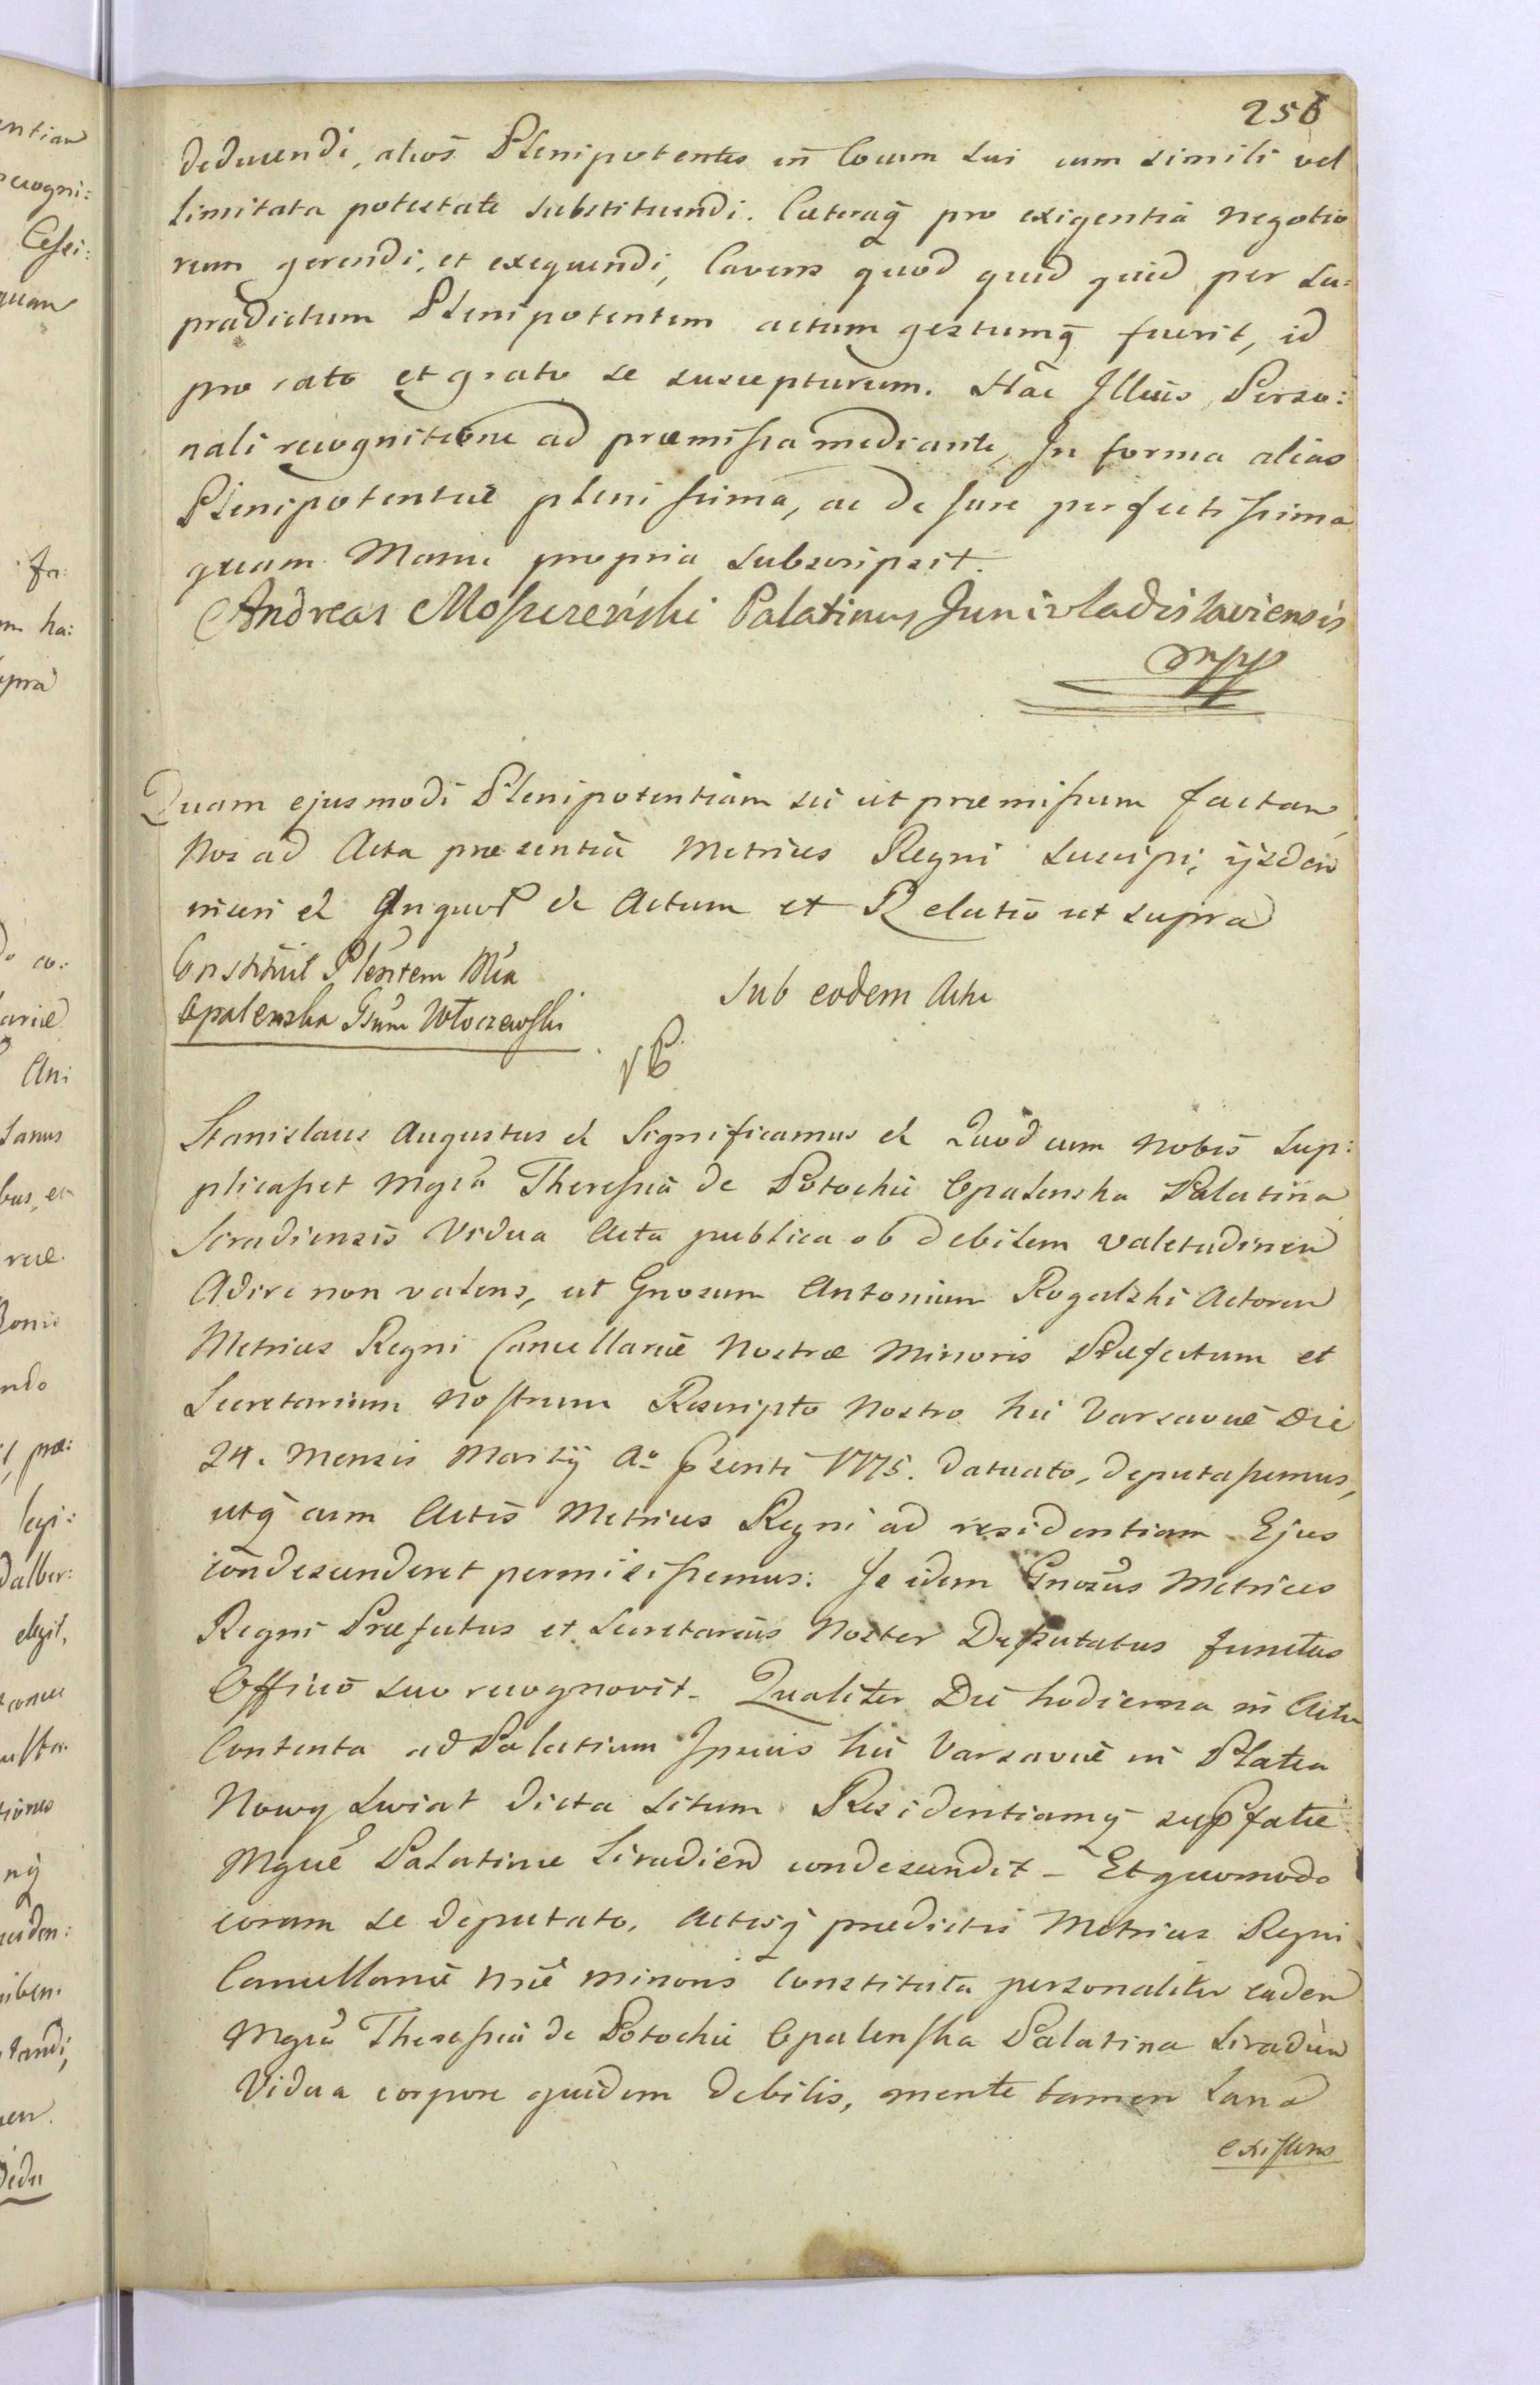 256
deducendi, alios Plenipotentes in locum sui cum simili vel
limitata potestate substituendi. Caeteraq̃ pro exigentia negotio
rum gerendi, et exequendi, Cavens quod quid quid per su=
pradictum Plenipotentem actum gestumq̃ fuerit, id
pro rato et grato se suscepturum. Hac Illius Perso:
nali recognitione ad præmissa mediante, In forma alias
Plenipotentiæ plenissima, ac de Jure perfectissima
quam Manu propria subscripsit.
Andreas Moszczeński Palatinus Junivladislaviensis
mpp
Quam ejusmodi Plenipotentiam sic ut præmissum factam
Nos ad Acta præsentia Metrices Regni suscipi, ijsdem
inseri et Inquor̃ et Actum et Relatio ut supra
Constituit Pleñtem Mca
Opalenska Gsum Włoczewski
Sub eodem Actu
Stanislaus Augustus et Significamus et Quod cum Nobis Sup:
plicasset Mgca Theressia de Potockie Opalenska Palatina
Siradiensis Vidua Acta publica ob debilem valetudinem
Adire non valens, ut Gnosum Antonium Rogalski Actorum
Metrices Regni Cancellariæ Nostræ Minoris Præfectum et
Secretarium Nostrum Rescripto Nostro hic Varsaviæ Die
24. Mensis Martij Aº p̃senti 1775. datuato, deputassemus,
utq̃ cum Actis Metrices Regni ad residentiam Ejus
condescenderet permisissemus: Je idem Gnosus Metrices
Regni Præfectus et Secretarius Noster Deputatus functus
Officio suo recognovit. Qualiter Die hodierna in Actu
Contenta ad Palatium Ipsius hic Varsaviæ in Platea
Nowy Swiat dicta situm Residentiamq̃ sup̃fatæ
Mgcæ Palatinæ Siradien condescendit – Et quomodo
coram se deputato, Actisq̃ prædictis Metrices Regni
Cancellariæ Nræ minoris constituta personaliter eadem
Mgca Theressia de Potockie Opalenska Palatina Siradien
Vidua corpore quidem debilis, mente tamen sana
existens